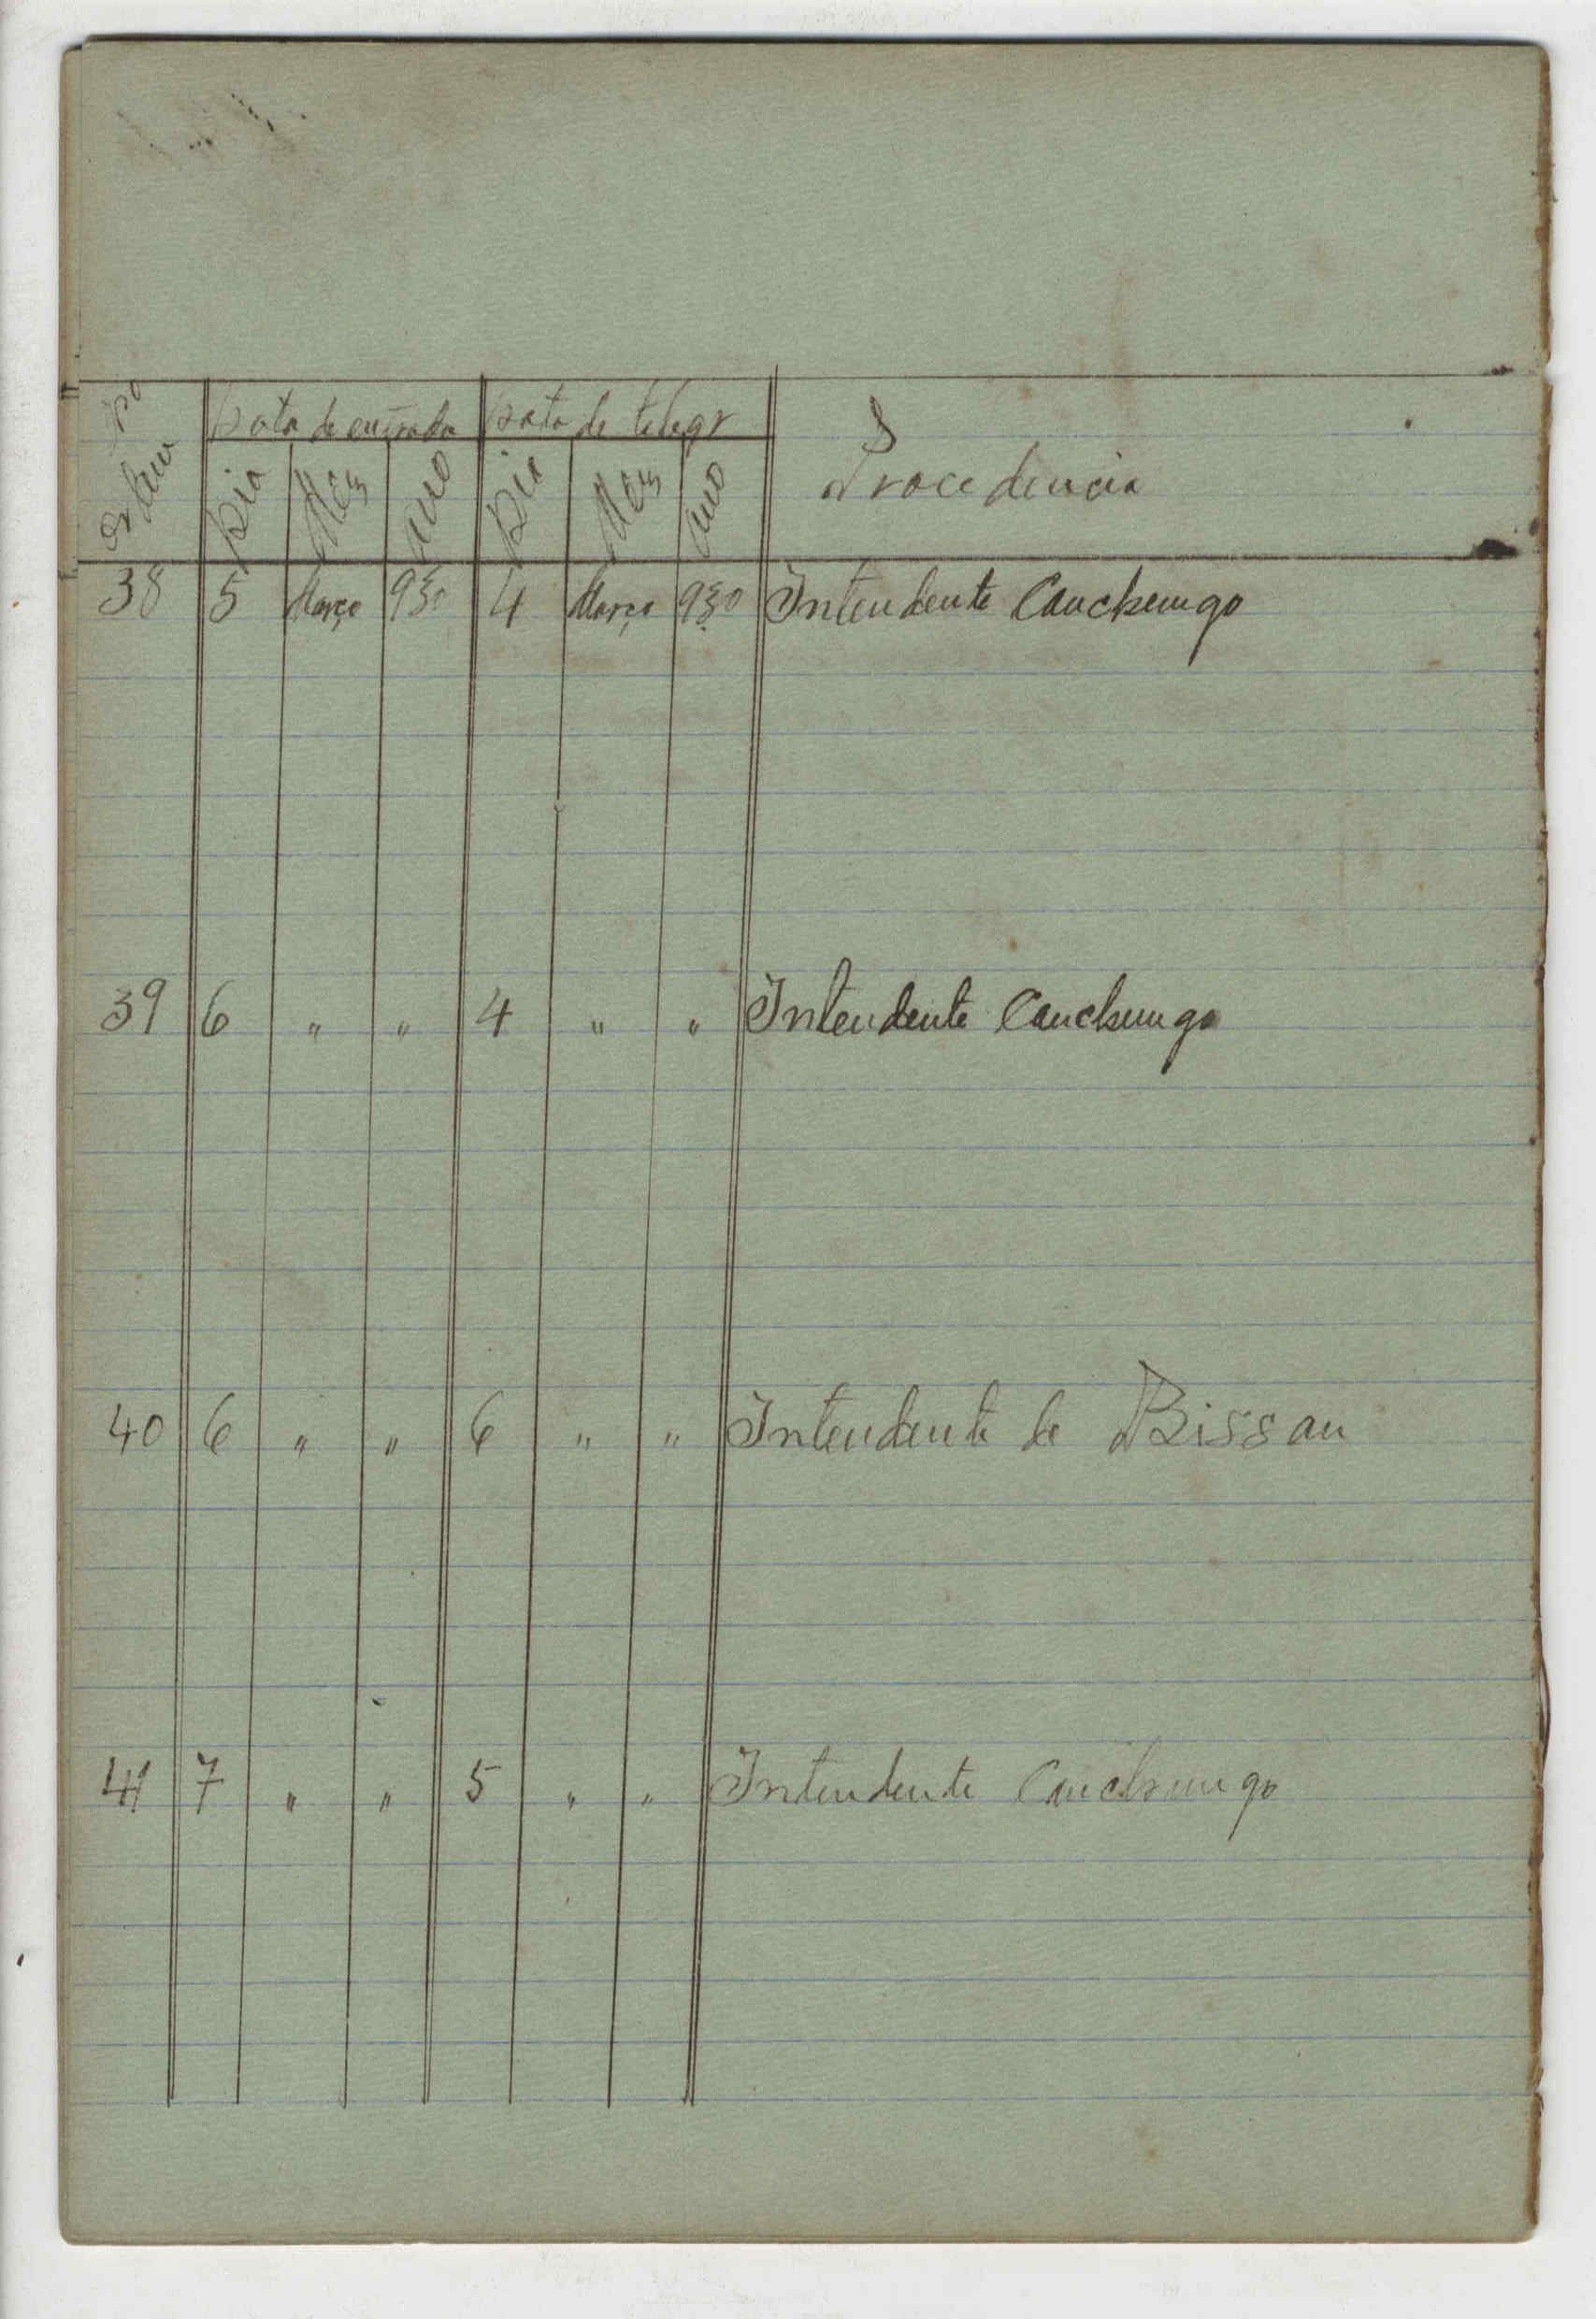 Nº Ordem Data de entrada Data de telegr Procedencia
Dia Mês Ano Dia Mês Ano
38 5 Março 930 4 Março 930 Intendente Canchungo
39 6 " " 4 " " Intendente Canchungo
40 6 " " 6 " " Intendente de Bissau
41 7 " " 5 " " Intendente Canchungo